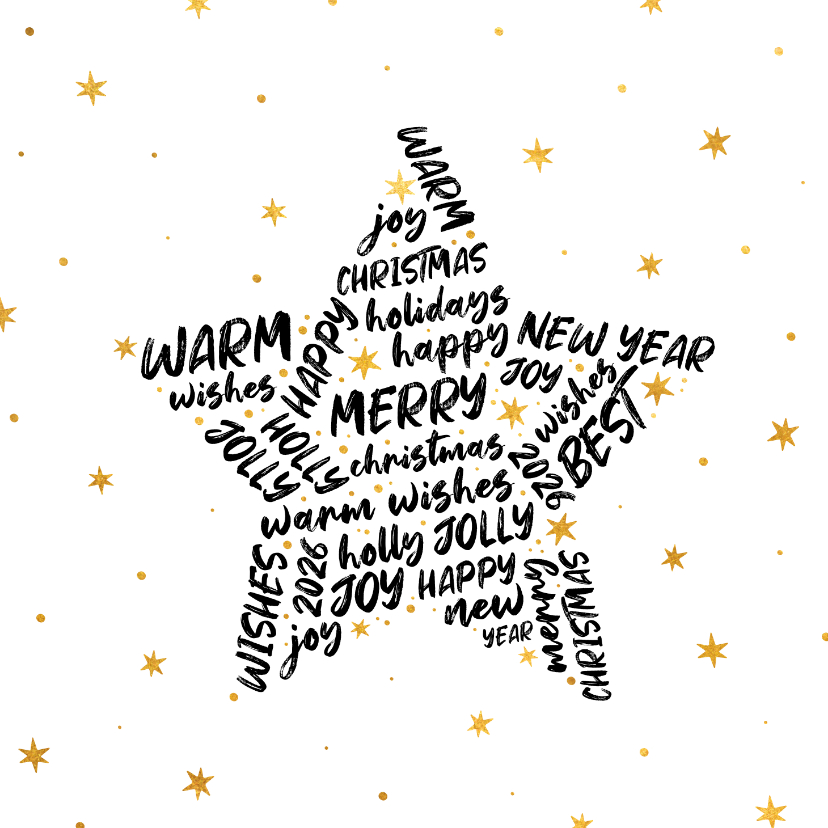 WARM
joy
CHRISTMAS
holidays
happy
HAPPY
WARM
wishes
NEW YEAR
JOY
wishes
BEST
MERRY
HOLLY
JOLLY
christmas
2026
warm wishes
holly JOLLY
WISHES
2026
JOY HAPPY
joy
new
YEAR
merry
CHRISTMAS